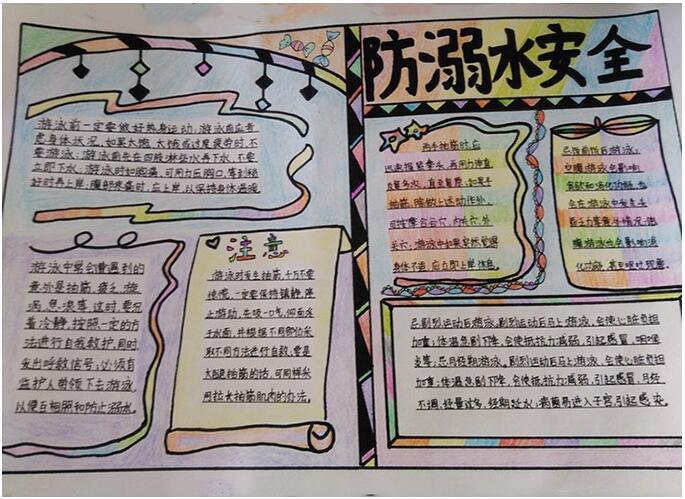 防溺水安全
游泳前一定要做好热身运动,游泳前应考
虑身体状况,如果太饱、太饿或过度疲劳时,不
要游泳;游泳前先在四肢淋些水再下水,不要
立即下水;游泳时如胸痛,可用力压胸口,等到稍
好时再上岸,腹部疼痛时,应上岸,以保持身体温暖
游泳中常会遭遇到的
意外是抽筋、疲乏、漩
涡、急浪等,这时要沉
着冷静,按照一定的方
法进行自我救护,同时,
发出呼救信号;必须有
监护人带领下去游泳,
以便互相照和防止溺水。
注意
游泳时发生抽筋,千万不要
惊慌,一定要保持镇静,停
止游动,先吸一口气,仰面浮
于水面,并根据不同部位采
取不同方法进行自救,要是
大腿抽筋的话,可同样采
用拉长抽筋肌肉的办法。
两手抽筋时,应
迅速握紧拳头,再用力伸直
反复多次,直至复原,如果手
抽筋,除做上述动作外,
可按摩合谷穴,内关穴,外
关穴,游泳中如果突然觉得
身体不适,应立即上岸休息。
忌饭前饭后游泳,
空腹游泳会影响
食欲和消化功能,也
会在游泳中发生头
昏乏力等意外情况;饱
腹游泳也会影响消
化功能,甚至呕吐现象。
忌剧烈运动后游泳,剧烈运动后马上游泳,会使心脏负担
加重;体温急剧下降,会使抵抗力减弱,引起感冒,咽喉
炎等,忌月经期游泳,剧烈运动后马上游泳,会使心脏负担
加重;体温急剧下降,会使抵抗力减弱,引起感冒,月经
不调,经量过多,经期延长;病菌易进入子宫,引起感染。